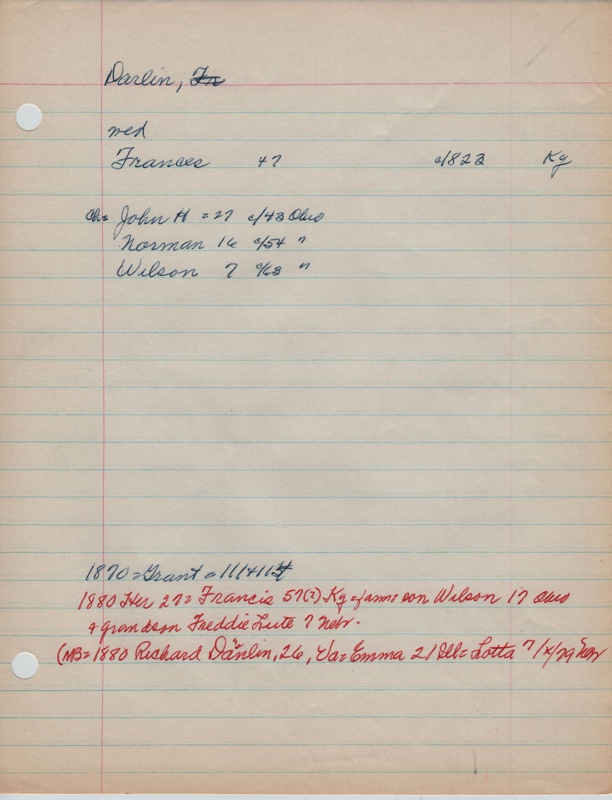 Darlin, Fr
wed
Frances 47 c/1823 Ky
Ch= John H = 27 c/43 Ohio
Norman 16 c/54 "
Wilson 7 c/63 "
1870 = Grant = 11/41
1880 Her 27 = Francis 57(?) Ky son Wilson 17 Ohio
& grandson Freddie Lute 7 Nebr.
(MB = 1880 Richard Danlin, 26, Va = Emma 21 Ill = Lotta